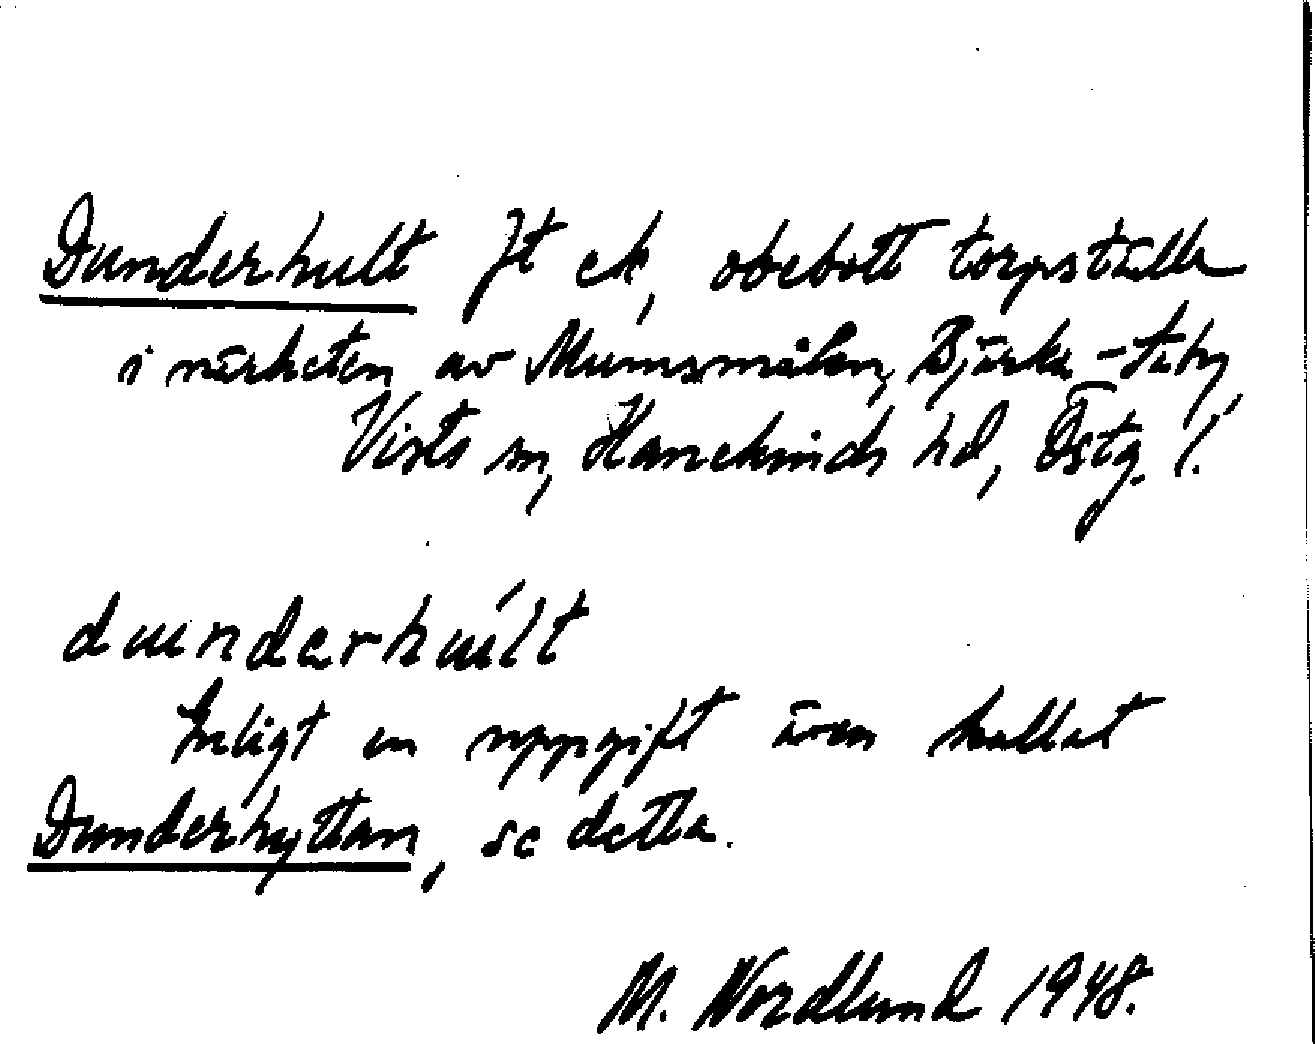 Dunderhult Jt ek, obebott torpställe
i närheten av Mumsmålen, Bjärka-Säby,
Vists sn, Hanekinds hd, Östg. l.
dunderhúlt
Enligt en uppgift även kallat
Dunderhyttan, se detta.
M. Nordlund 1948.